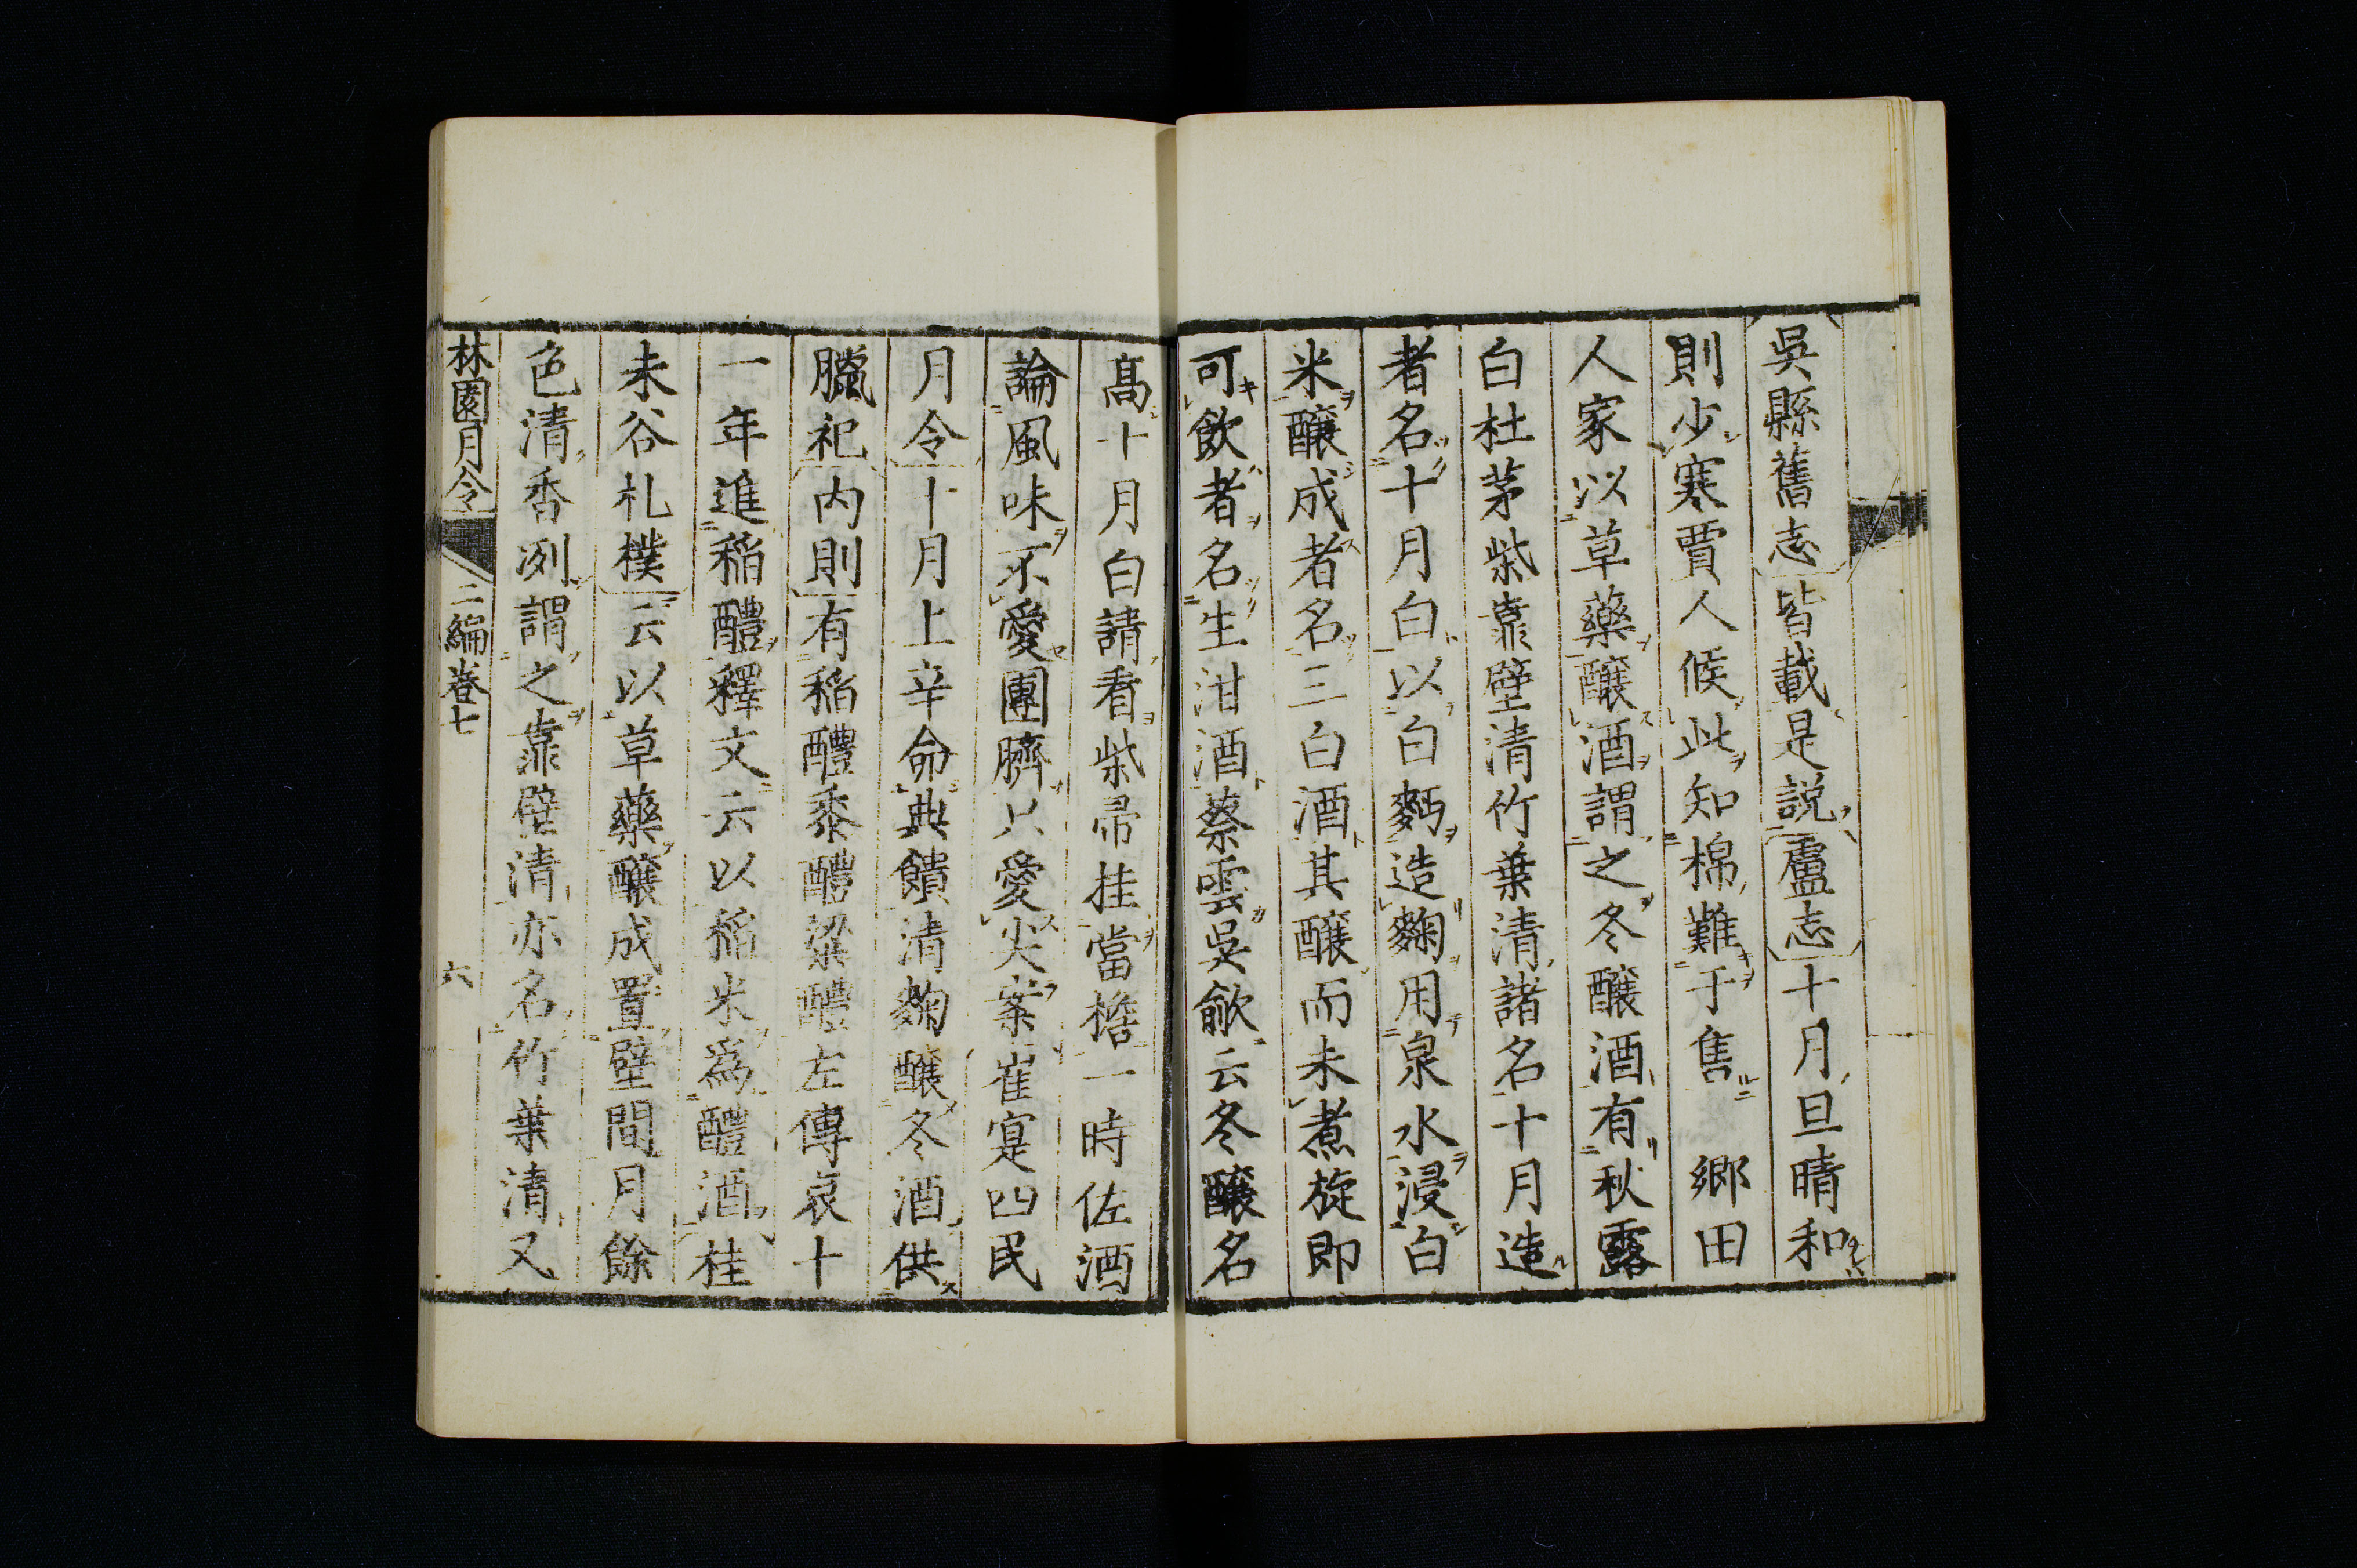 吳縣舊志皆載是説盧志十月旦晴和
則少寒賈人候此知棉難于售　鄉田
人家以草藥醸酒謂之冬醸酒有秋露
白杜茅柴靠壁清竹葉清諸名十月造
者名十月白以白麪造麴用泉水浸白
米醸成者名三白酒其醸而未煮旋即
可飲者名生泔酒蔡雲吳歈云冬醸名
髙十月白請看柴帚挂當檐一時佐酒
論風味不愛團臍只愛尖案崔寔四民
月令十月上辛命典饋清麴醸冬酒供
臘祀内則有稻醴黍醴粱醴左傳哀十
一年進稻醴釋文云以稻米為醴酒桂
未谷札樸云以草藥醸成置壁間月餘
色清香冽謂之靠壁清亦名竹葉清又
林園月令　二編卷七　六